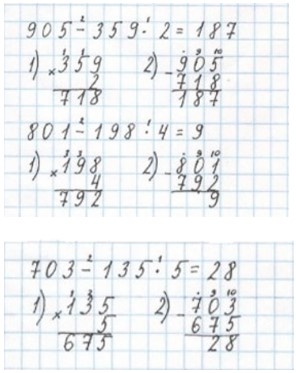 905 - 359 · 2 = 187
1) × 359
2
718
2) - 905
718
187
801 - 198 · 4 = 9
1) × 198
4
792
2) - 801
792
9
703 - 135 · 5 = 28
1) × 135
5
675
2) - 703
675
28